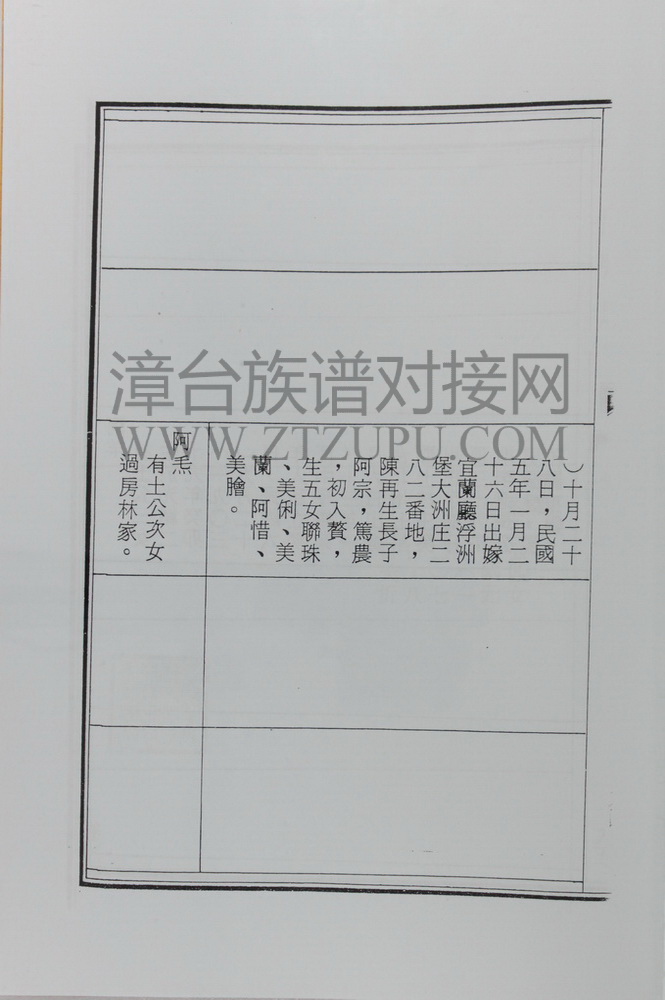 ）十月二十
八日，民國
五年一月二
十六日出嫁
宜蘭廳浮洲
堡大洲庄二
八二番地，
陳再生長子
阿宗，篤農
，初入贅，
生五女聯珠
、美俐、美
蘭、阿惜、
美膾。
阿炁
有土公次女
過房林家。
漳台族谱对接网
WWW.ZTZUPU.COM